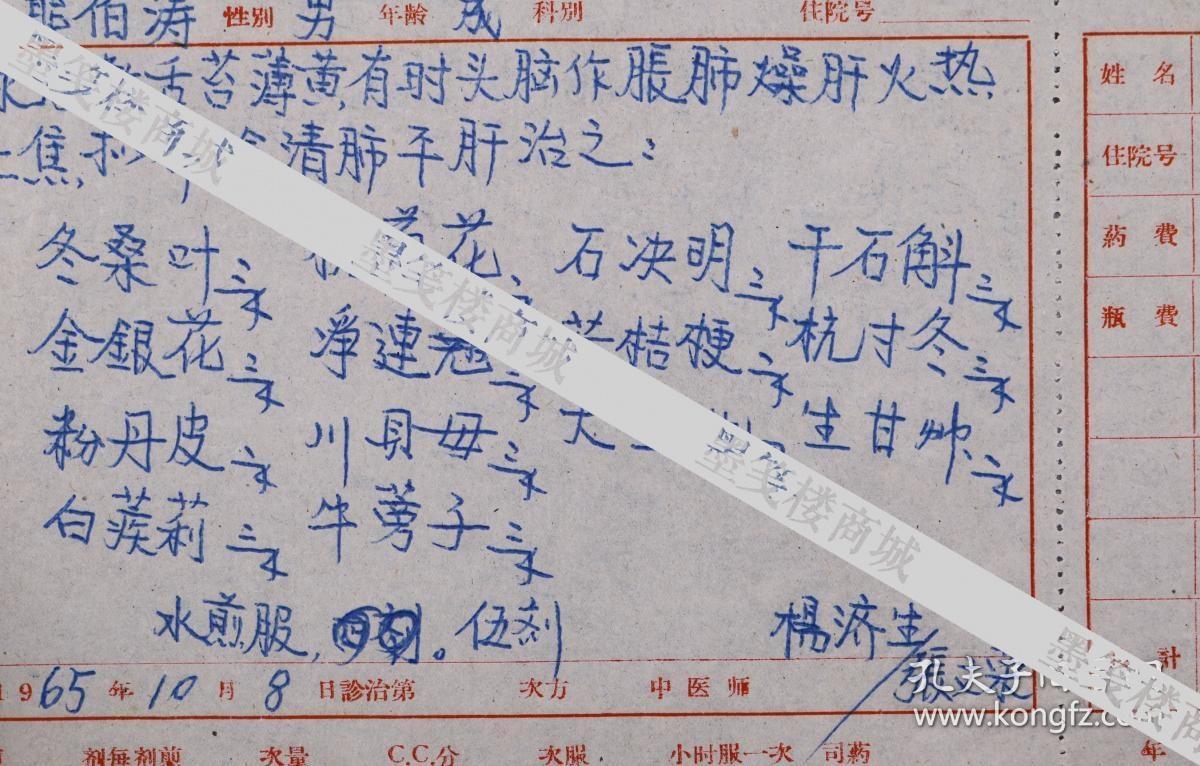 伯涛 性別 男 年齡 成 科別 住院号
舌苔薄黄有时头脑作脹肺燥肝火热
焦 清肺平肝治之：
冬桑叶三钱 花 石决明三钱 干石斛三钱
金銀花三钱 净連翘 桔梗二钱 杭寸冬三钱
粉丹皮二钱 川貝母三钱 生甘草二钱
白蒺莉三钱 牛蒡子三钱
水煎服，。伍剂
楊济生
1965年10月8日診治第 次方 中医师
剂每剂煎 次量 C.C.分 次服 小时服一次 司葯
姓名
住院号
葯費
瓶費
計
年
墨笺楼商城
墨笺楼商城
墨笺楼商城
墨笺楼商
孔夫子
www.kongfz.com